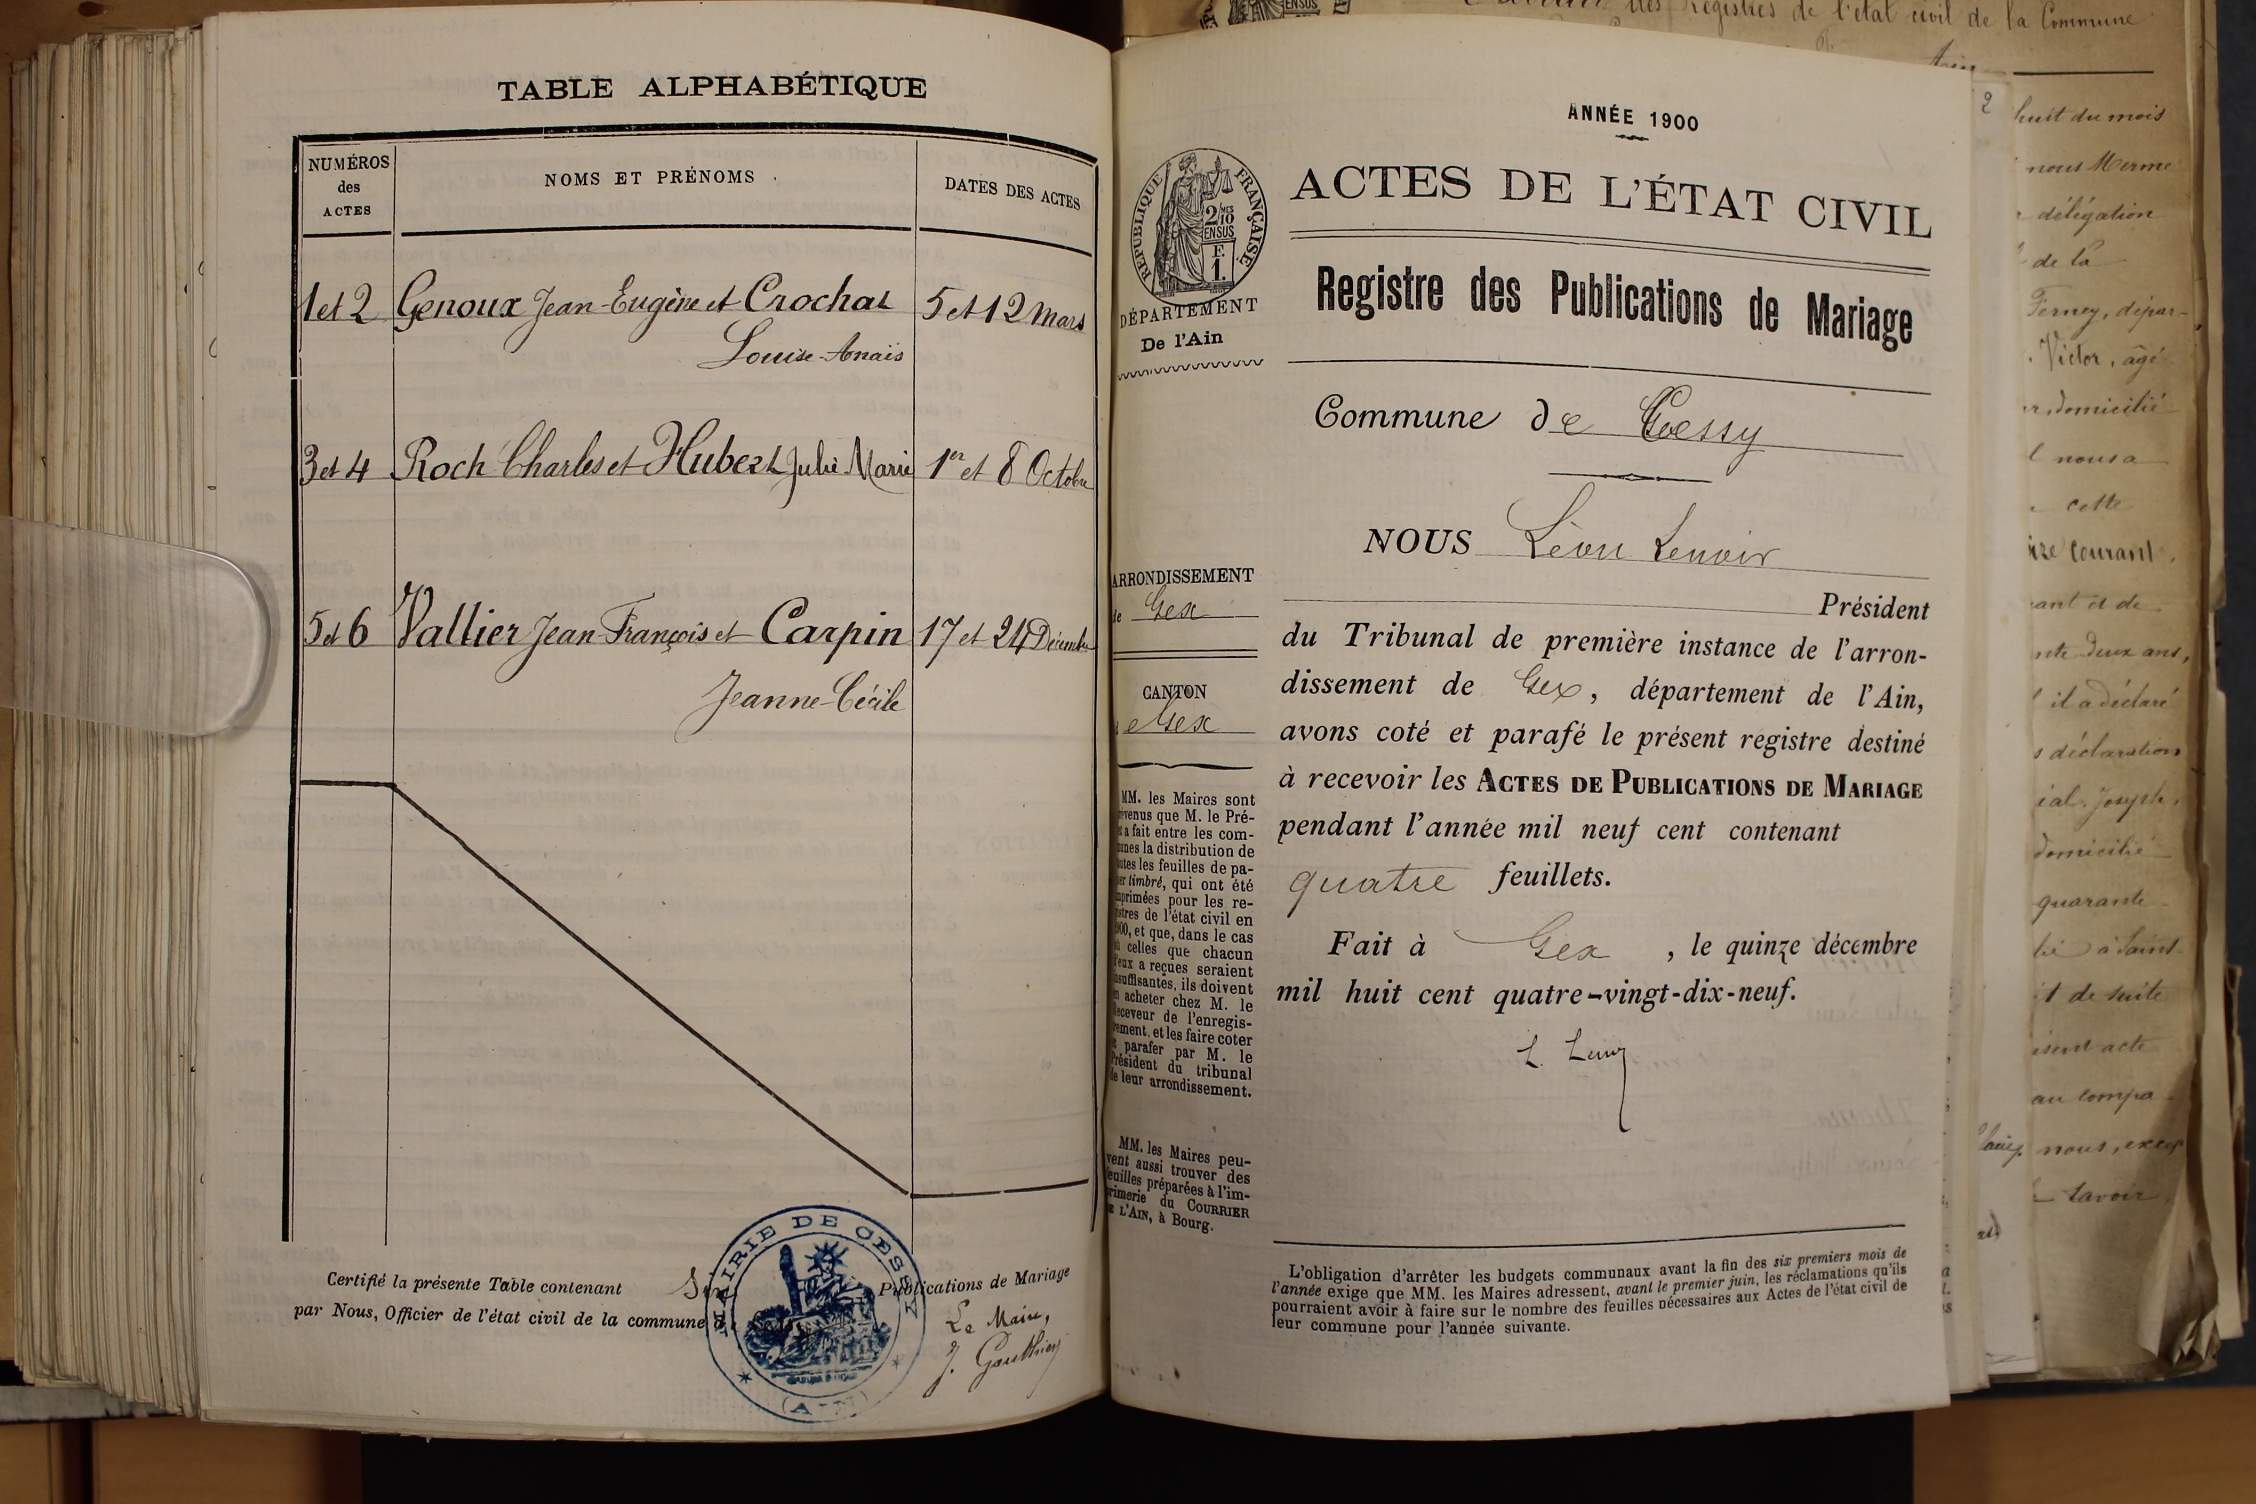 TABLE ALPHABÉTIQUE
NUMÉROS
des
ACTES
NOMS ET PRÉNOMS
DATES DES ACTES
1 et 2 Genoux Jean-Eugène et Crochat 5 et 12 Mars
Louise-Anaïs
3 et 4 Roch Charles et Hubert Julie Marie 1er et 8 Octobre
5 et 6 Vallier Jean-François et Carpin 17 et 24 Décembre
Jeanne-Cécile
Certifié la présente Table contenant Six Publications de Mariage
par Nous, Officier de l'état civil de la commune d
Le Maire,
J. Gauthier
MAIRIE DE CESSY
(AIN)
ANNÉE 1900
RÉPUBLIQUE FRANÇAISE
2/10 MES
EN SUS
F.
1.
DÉPARTEMENT
De l'Ain
ACTES DE L'ÉTAT CIVIL
Registre des Publications de Mariage
Commune de Cessy
NOUS Léon Lenoir
Président
du Tribunal de première instance de l'arron-
dissement de Gex, département de l'Ain,
avons coté et parafé le présent registre destiné
à recevoir les ACTES DE PUBLICATIONS DE MARIAGE
pendant l'année mil neuf cent contenant
quatre feuillets.
Fait à Gex, le quinze décembre
mil huit cent quatre-vingt-dix-neuf.
ARRONDISSEMENT
de Gex
CANTON
de Gex
MM. les Maires sont
prévenus que M. le Pré-
fet a fait entre les com-
munes la distribution de
toutes les feuilles de pa-
pier timbré, qui ont été
imprimées pour les re-
gistres de l'état civil en
1900, et que, dans le cas
où celles que chacun
d'eux a reçues seraient
insuffisantes, ils doivent
en acheter chez M. le
Receveur de l'enregis-
trement, et les faire coter
et parafer par M. le
Président du tribunal
de leur arrondissement.
MM. les Maires peu-
vent aussi trouver des
feuilles préparées à l'im-
primerie du COURRIER
DE L'AIN, à Bourg.
L'obligation d'arrêter les budgets communaux avant la fin des six premiers mois de
l'année exige que MM. les Maires adressent, avant le premier juin, les réclamations qu'ils
pourraient avoir à faire sur le nombre des feuilles nécessaires aux Actes de l'état civil de
leur commune pour l'année suivante.
des registres de l'état civil de la Commune
2
huit du mois
nous Merme
délégation
de la
Ferney, dépar-
Victor, âgé
domicilié
nous a
cette
courant.
ant et de
deux ans,
il a déclaré
déclaration
Joseph,
domicilié
quarante
à Saint-
de suite
acte
au compa-
nous, excep
savoir,